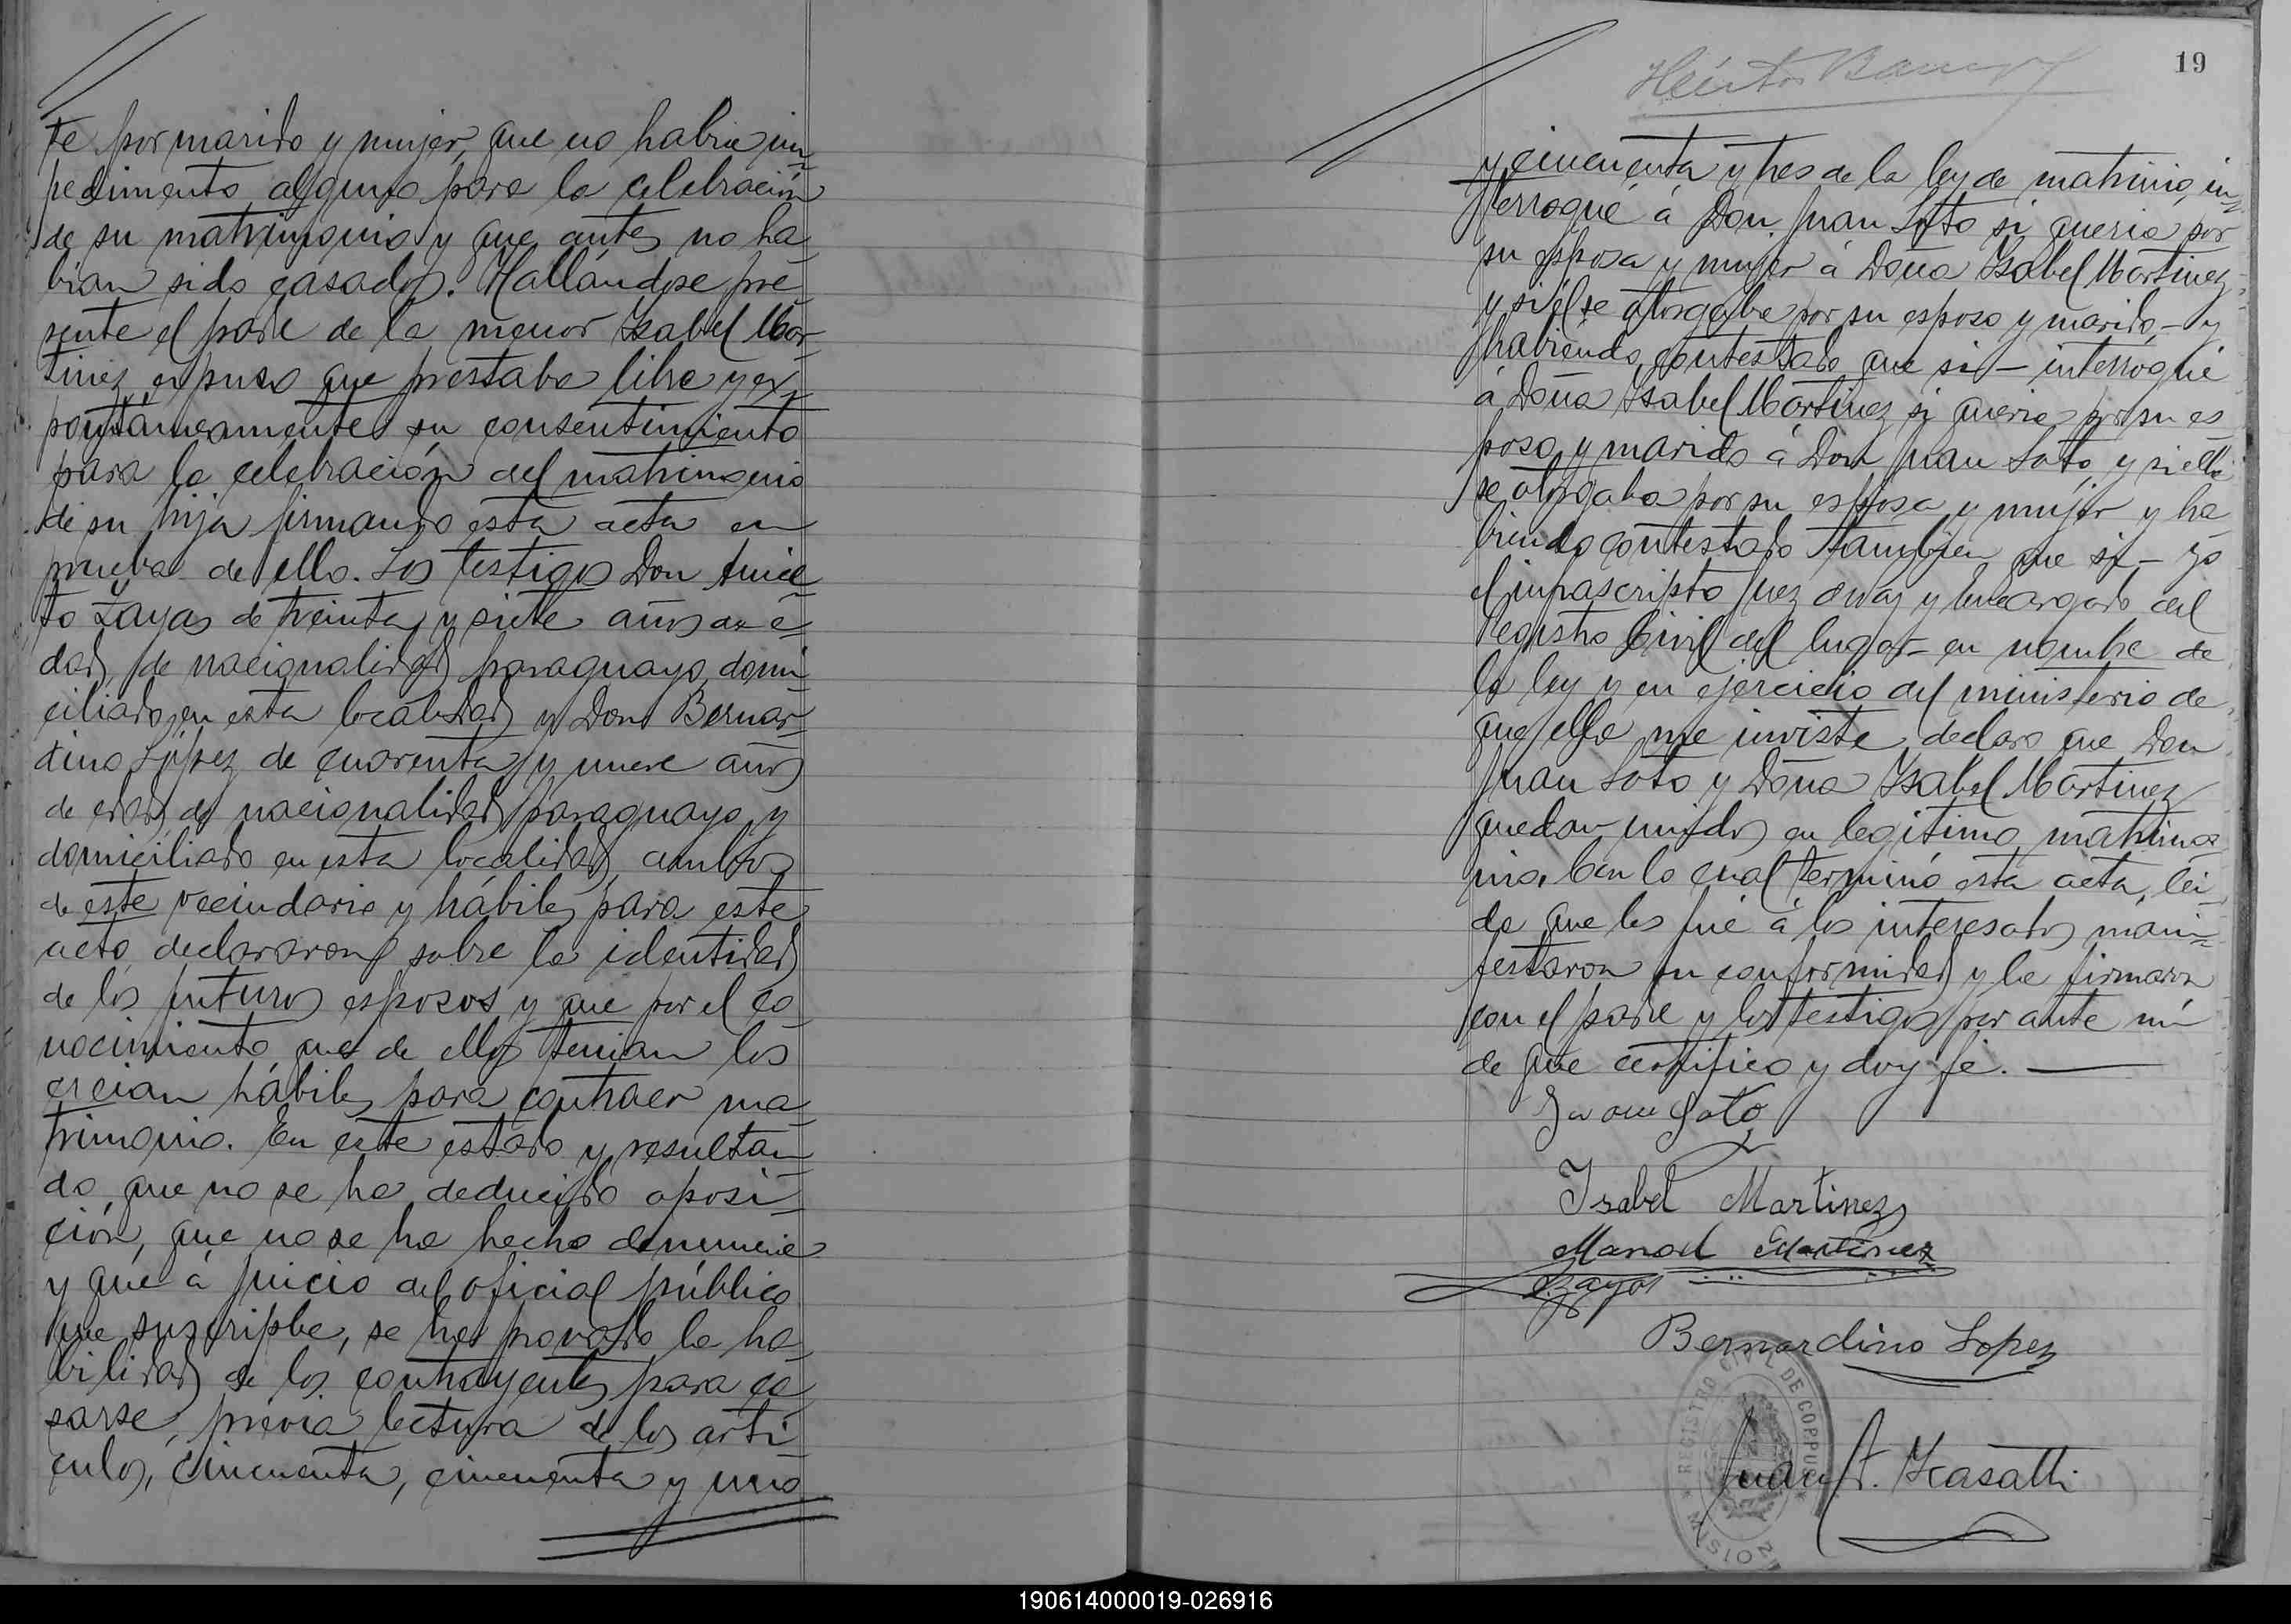 te por marido y mujer, que no habia im
pedimento alguno para la celebración
de su matrimonio y que antes no ha
bian sido casados. Hallándose pre
sente el padre de la menor Isabel Mar
tinez expuso que prestaba libre y ex
pontáneamente su consentimiento
para la celebración del matrimonio
de su hija firmando esta acta en
prueba de ello. Los testigos Don Anicé
to Zayas de treinta y siete años de e
dad, de nacionalidad paraguayo, domi
ciliado en esta localidad y Don Bernar
dino López de cuarenta y nueve años
de edad, de nacionalidad paraguayo y
domiciliado en esta localidad, ambos
de este vecindario y hábiles para este
acto, declararon sobre la identidad
de los futuros esposos y que por el co
nocimiento que de ellos tenian los
creian hábiles para contraer ma
trimonio. En este estado y resultan
do que no se ha deducido oposi
ción, que no se ha hecho denuncia
y que á juicio del oficial público
que suscripbe, se ha provado la ha
bilidad de los contrayentes para ca
sarse, prévia lectura de los arti
culos, cincuenta, cincuenta y uno
19
Héctor
y cincuenta y tres de la ley de matrimio, in
terrogué á Don Juan Soto si queria por
su esposa y mujer á Doña Isabel Martinez
y si él se otorgaba por su esposo y marido - y
habiendo contestado que si - interrogué
á Doña Isabel Martinez si queria por su es
poso y marido á Don Juan Soto y si ella
se otorgaba por su esposa y mujer y ha
biendo contestado tambien que si - yo
el infrascripto Juez de Paz y Encargado del
Registro Civil del lugar - en nombre de
la ley y en ejercicio del ministerio de
que ella me inviste declaro que Don
Juan Soto y Doña Isabel Martinez
quedan unidos en legítimo matrimo
nio. Con lo cual terminó esta acta, lei
da que les fué á los interesados mani
festaron su conformidad y la firmaron
con el padre y los testigos por ante mi
de que certifico y doy fé.
Juan Soto
Isabel Martinez
Manoel Martinez
A. Zayas
Bernardino Lopez
REGISTRO CIVIL DE COPPUS
MISIONES
Juan A. Kasatti
190614000019-026916